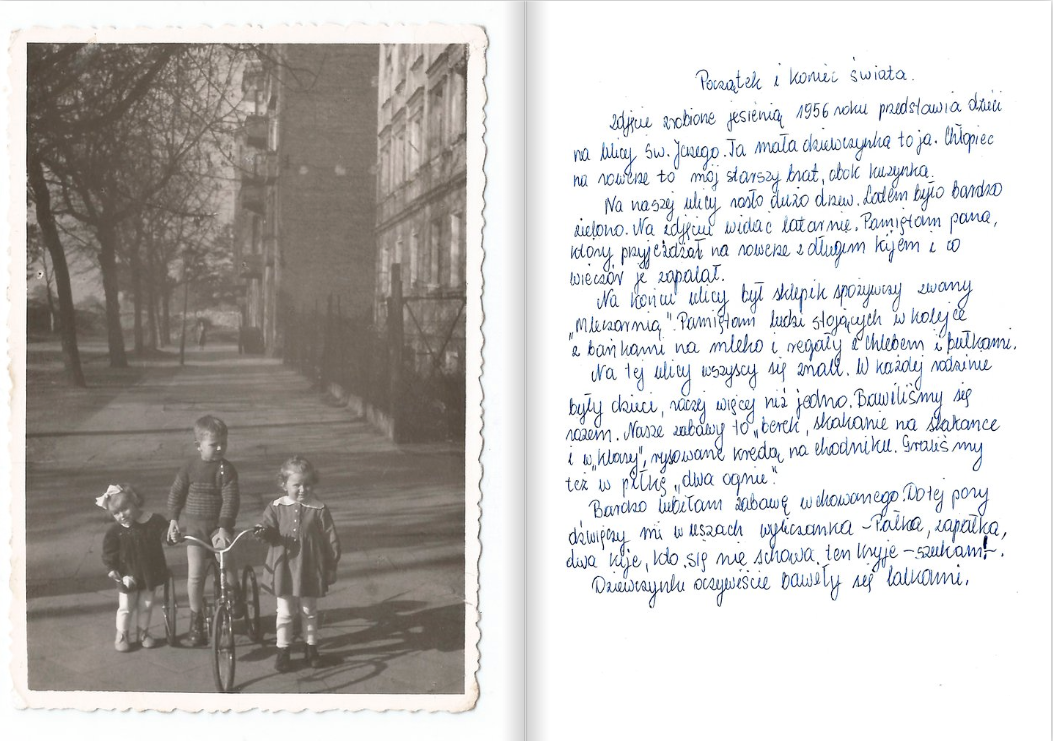 Początek i koniec świata.
Zdjęcie zrobione jesienią 1956 roku przedstawia dzieci
na ulicy św. Jerzego. Ta mała dziewczynka to ja. Chłopiec
na rowerze to mój starszy brat, obok kuzynka.
Na naszej ulicy rosło dużo drzew. Latem było bardzo
zielono. Na zdjęciu widać latarnię. Pamiętam pana,
który przyjeżdżał na rowerze z długim kijem i co
wieczór je zapalał.
Na końcu ulicy był sklepik spożywczy zwany
„Mleczarnią". Pamiętam ludzi stojących w kolejce
z bańkami na mleko i regały z chlebem i bułkami.
Na tej ulicy wszyscy się znali. W każdej rodzinie
były dzieci, raczej więcej niż jedno. Bawiliśmy się
razem. Nasze zabawy to „berek, skakanie na skakance
i w „klasy", rysowane kredą na chodniku. Graliśmy
też w piłkę „dwa ognie".
Bardzo lubiłam zabawę w chowanego. Do tej pory
dźwięczy mi w uszach wyliczanka – Pałka, zapałka,
dwa kije, kto się nie schowa ten kryje – szukam! –.
Dziewczynki oczywiście bawiły się lalkami.